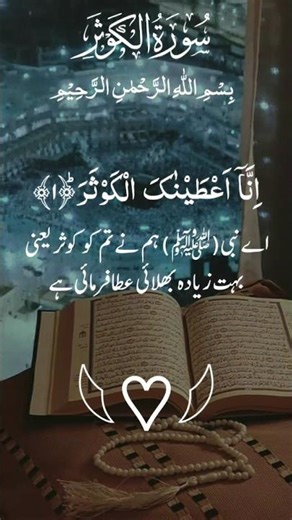 سُوْرَةُ الْكَوْثَرِ
بِسْمِ اللّٰهِ الرَّحْمٰنِ الرَّحِيْمِ
اِنَّاۤ اَعْطَيْنٰكَ الْكَوْثَرَؕ ﴿۱﴾
اے نبی (ﷺ) ہم نے تم کو کوثر یعنی
بہت زیادہ بھلائی عطا فرمائی ہے